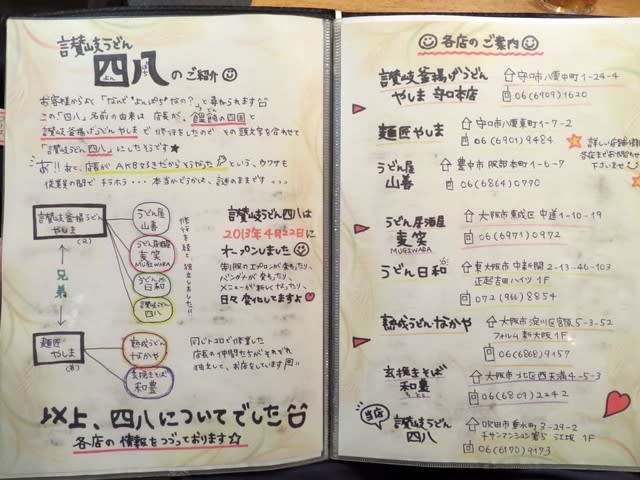 讃岐うどん
四八 のご紹介
よん ぱち
お客様からよく「なんで"よんぱち"なの？」と尋ねられます
この「四八」名前の由来は 店長が、饂飩の四国と
讃岐釜揚げうどん やしま で 修行をしたので その頭文字を合わせて
「讃岐うどん 四八」にしたそうです★
あ！！あと、店長が AKB好きだからそうなった という、ウワサも
従業員の間で チラホラ・・・ 本当かどうかは、謎のままです
讃岐釜揚げうどん
やしま
(兄)
うどん屋
山喜
うどん居酒屋
麦笑
MUGIWARA
うどん
日和
讃岐うどん
四八
修行を経て独立しました!!
兄弟
麺匠
やしま
(弟)
熟成うどん
なかや
玄挽きそば
和豊
讃岐うどん四八は
2013年4月22日に
オープンしました
制服のエプロンが変わったり、
バンダナが変わったり、
メニューが新しくなったり、
日々変化してますよ♥
同じトコロで修業した
店長の仲間たちがそれぞれ
独立して、お店をしています
以上、四八についてでした
各店の情報をつづっております☆
各店のご案内
讃岐釜揚げうどん
やしま 守口本店
守口市八雲中町1-24-4
06(6909)1620
麺匠やしま
守口市八雲東町1-7-2
06(6901)9484
詳しい店舗情報は
各店までお問わせ
下さいませ
うどん屋
山喜
豊中市 服部本町1-6-7
06(6864)0770
うどん居酒屋
麦笑
MUGIWARA
大阪市東成区 中道1-10-19
06(6971)0972
うどん日和
東大阪市 中新開2-13-46-103
正起吉田ハイツ 1F
072(966)8854
熟成うどん なかや
大阪市 淀川区宮原5-3-52
フォルム新大阪 1F
06(6868)9157
玄挽きそば
和豊
大阪市 北区西天満4-5-3
06(6809)2242
当店
讃岐うどん
四八
吹田市垂水町 3-29-2
チサンマンション第5 江坂 1F
06(6170)9173